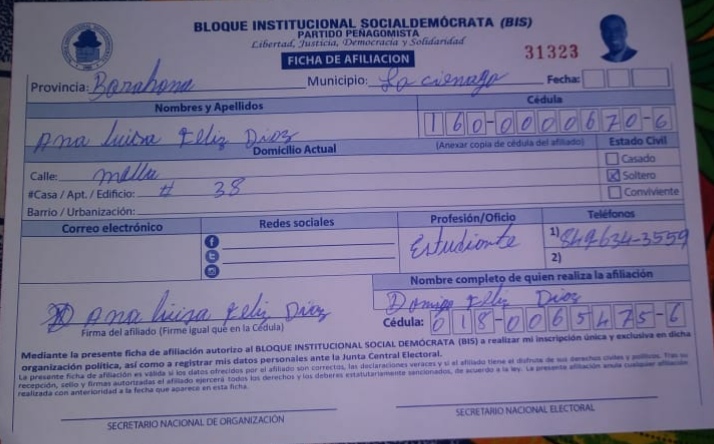 BLOQUE INSTITUCIONAL SOCIALDEMÓCRATA (BIS)
PARTIDO PEÑAGOMISTA
Libertad, Justicia, Democracia y Solidaridad
FICHA DE AFILIACION
31323
Provincia: Barahona Municipio: La cienaga Fecha:
Nombres y Apellidos Cédula
Ana luisa Feliz Diaz 160-0000670-6
Domicilio Actual (Anexar copia de cédula del afiliado) Estado Civil
Calle: mella Casado
#Casa / Apt. / Edificio: # 38 Soltero
Barrio / Urbanización: Conviviente
Correo electrónico Redes sociales Profesión/Oficio Teléfonos
Estudiante 1) 849634-3559
2)
Nombre completo de quien realiza la afiliación
Feliz Diaz
Ana luisa Feliz Diaz
Firma del afiliado (Firme igual que en la Cédula) Cédula: 018-0065475-6
Mediante la presente ficha de afiliación autorizo al BLOQUE INSTITUCIONAL SOCIAL DEMÓCRATA (BIS) a realizar mi inscripción única y exclusiva en dicha
organización política, así como a registrar mis datos personales ante la Junta Central Electoral.
La presente ficha de afiliación es válida si los datos ofrecidos por el afiliado son correctos, las declaraciones veraces y si el afiliado tiene el disfrute de sus derechos civiles y políticos. Tras su
recepción, sello y firmas autorizadas el afiliado ejercerá todos los derechos y los deberes estatutariamente sancionados, de acuerdo a la ley. La presente afiliación anula cualquier afiliación
realizada con anterioridad a la fecha que aparece en esta ficha.
SECRETARIO NACIONAL DE ORGANIZACIÓN SECRETARIO NACIONAL ELECTORAL